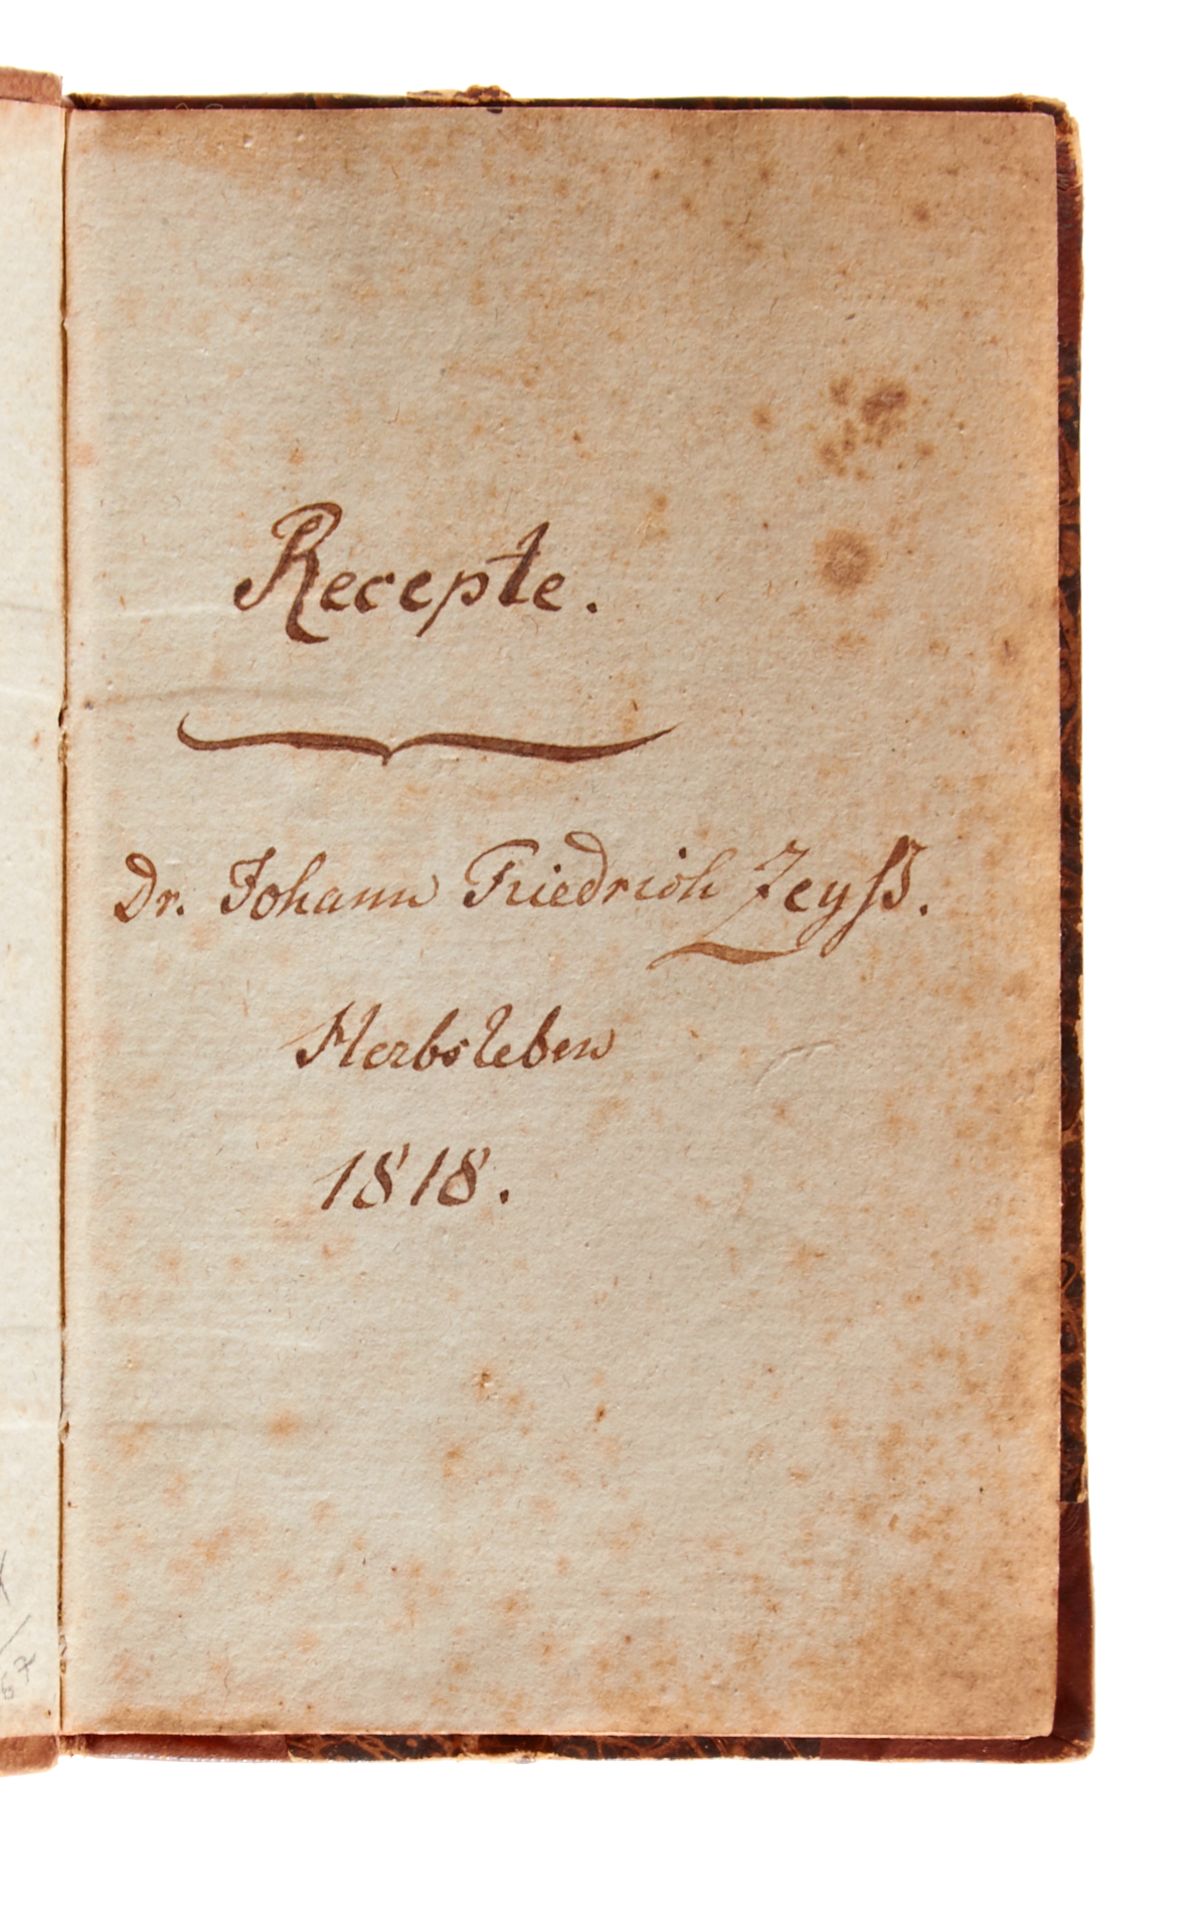 Recepte.
Dr. Johann Friedrich Zeyß.
Herbsleben
1818.
67